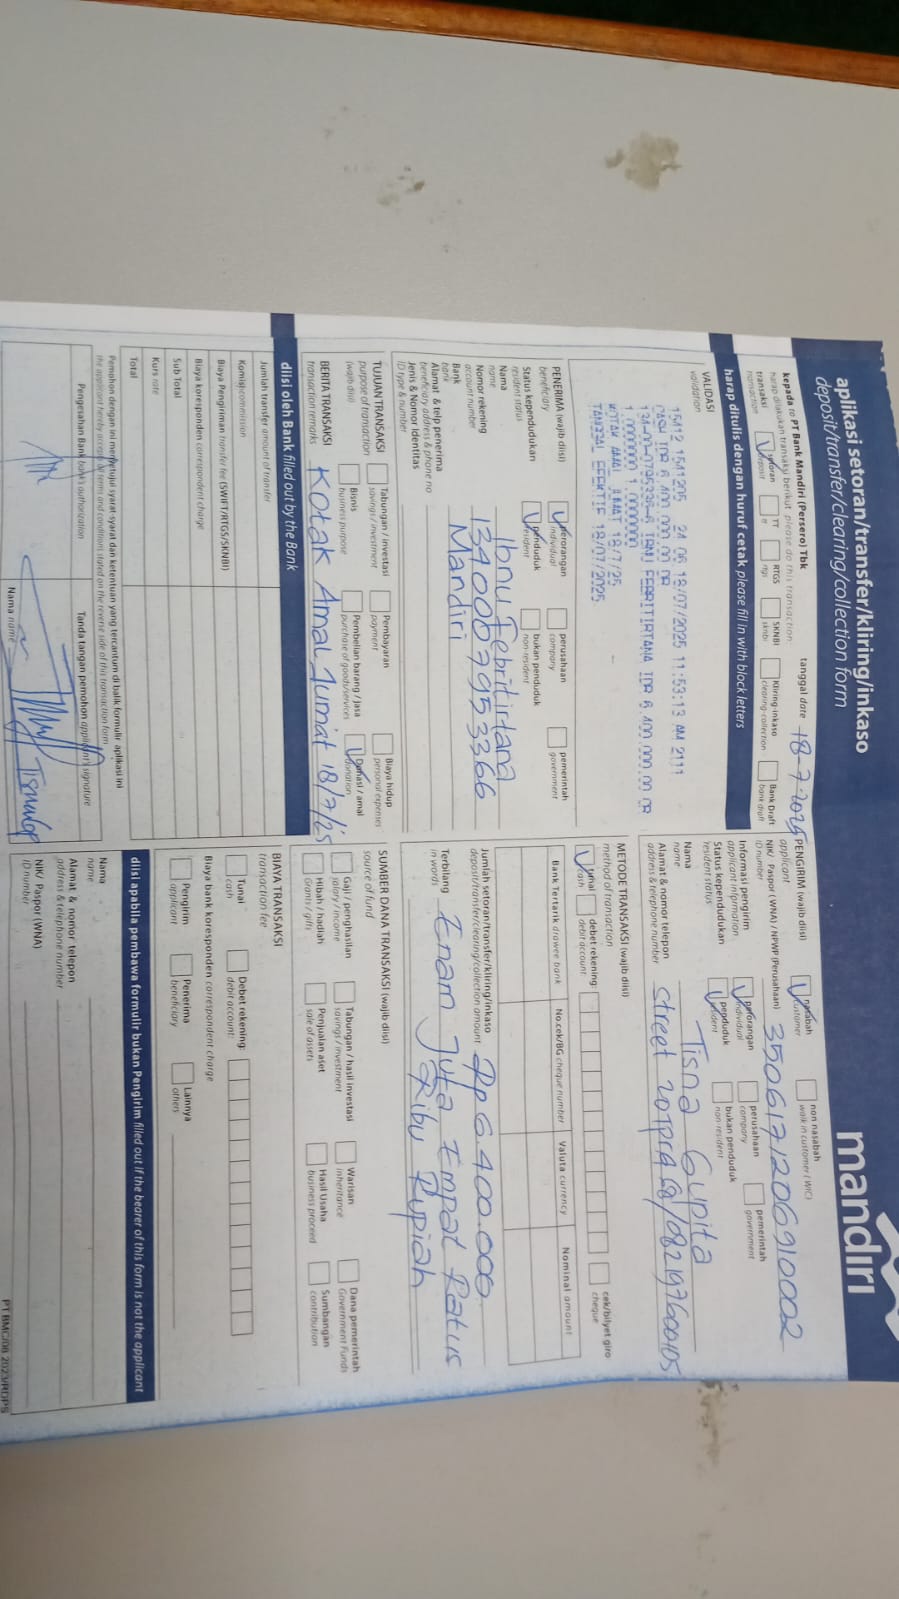 aplikasi setoran/transfer/kliring/inkaso
deposit/transfer/clearing/collection form
mandırı
kepada to PT Bank Mandiri (Persero) Tbk
tanggal date 18-7-2025
harap dilakukan transaksi berikut please do this transaction:
transaksi
transaction
setoran
deposit
TT
tt
RTGS
rtgs
SKNBI
sknbi
Kliring-inkaso
clearing-collection
Bank Draft
bank draft
harap ditulis dengan huruf cetak please fill in with block letters
VALIDASI
validation
15412 1541205 24 06 18/07/2025 11:53:13 AM 2111
CASH IDR 6.400.000,00 CR
1.0000000 1.0000000
KOTAK AMAL JUMAT 18/7/25
TANGGAL EFEKTIF 18/07/2025
PENERIMA (wajib diisi)
beneficiary
perorangan
individual
perusahaan
company
pemerintah
government
Status kependudukan
resident status
penduduk
resident
bukan penduduk
non-resident
Nama
name
Ibnu Febritirtana
Nomor rekening
account number
1340007953366
Bank
bank
Mandiri
Alamat & telp penerima
beneficiary address & phone no
Jenis & Nomor Identitas
ID type & number
TUJUAN TRANSAKSI
purpose of transaction
(wajib diisi)
Tabungan / investasi
savings / investment
Pembayaran
payment
Biaya hidup
personal expenses
Bisnis
business purpose
Pembelian barang / jasa
purchase of goods/services
Donasi / amal
donation
BERITA TRANSAKSI
transaction remarks
Kotak Amal Jumat 18/7/25
diisi oleh Bank filled out by the Bank
Jumlah transfer amount of transfer
Komisi commission
Biaya Pengiriman transfer fee (SWIFT/RTGS/SKNBI)
Biaya koresponden correspondent charge
Sub Total
Kurs rate
Total
Pemohon dengan ini menyetujui syarat-syarat dan ketentuan yang tercantum di balik formulir aplikasi ini
the applicant hereby accept all terms and conditions stated on the reverse side of this transaction form
Pengesahan Bank bank's authorization
Tanda tangan pemohon applicant's signature
Nama name
PENGIRIM (wajib diisi)
applicant
nasabah
customer
non nasabah
walk in customer (WIC)
NIK/ Paspor (WNA) / NPWP (Perusahaan)
ID number
3506171206910002
Informasi pengirim
applicant information
perorangan
individual
perusahaan
company
pemerintah
government
Status kependudukan
resident status
penduduk
resident
bukan penduduk
non-resident
Nama
name
Tisna Gupita
Alamat & nomor telepon
address & telephone number
street
METODE TRANSAKSI (wajib diisi)
method of transaction
tunai
cash
debet rekening:
debit account:
cek/bilyet giro
cheque
Bank Tertarik drawee bank
No.cek/BG cheque number
Valuta currency
Nominal amount
Jumlah setoran/transfer/kliring/inkaso
deposit/transfer/clearing/collection amount
Rp 6.400.000
Terbilang
in words
Enam Juta Empat Ratus
Ribu Rupiah
SUMBER DANA TRANSAKSI (wajib diisi)
source of fund
Gaji / penghasilan
salary / income
Tabungan / hasil investasi
savings / investment
Warisan
inheritance
Dana pemerintah
Government Funds
Hibah / hadiah
Grants / gifts
Penjualan aset
sale of assets
Hasil Usaha
business proceed
Sumbangan
contribution
BIAYA TRANSAKSI
transaction fee
Tunai
cash
Debet rekening:
debit account:
Biaya bank koresponden correspondent charge
Pengirim
applicant
Penerima
beneficiary
Lainnya
others
diisi apabila pembawa formulir bukan Pengirim filled out if the bearer of this form is not the applicant
Nama
name
Alamat & nomor telepon
address & telephone number
NIK/ Paspor (WNA)
ID number